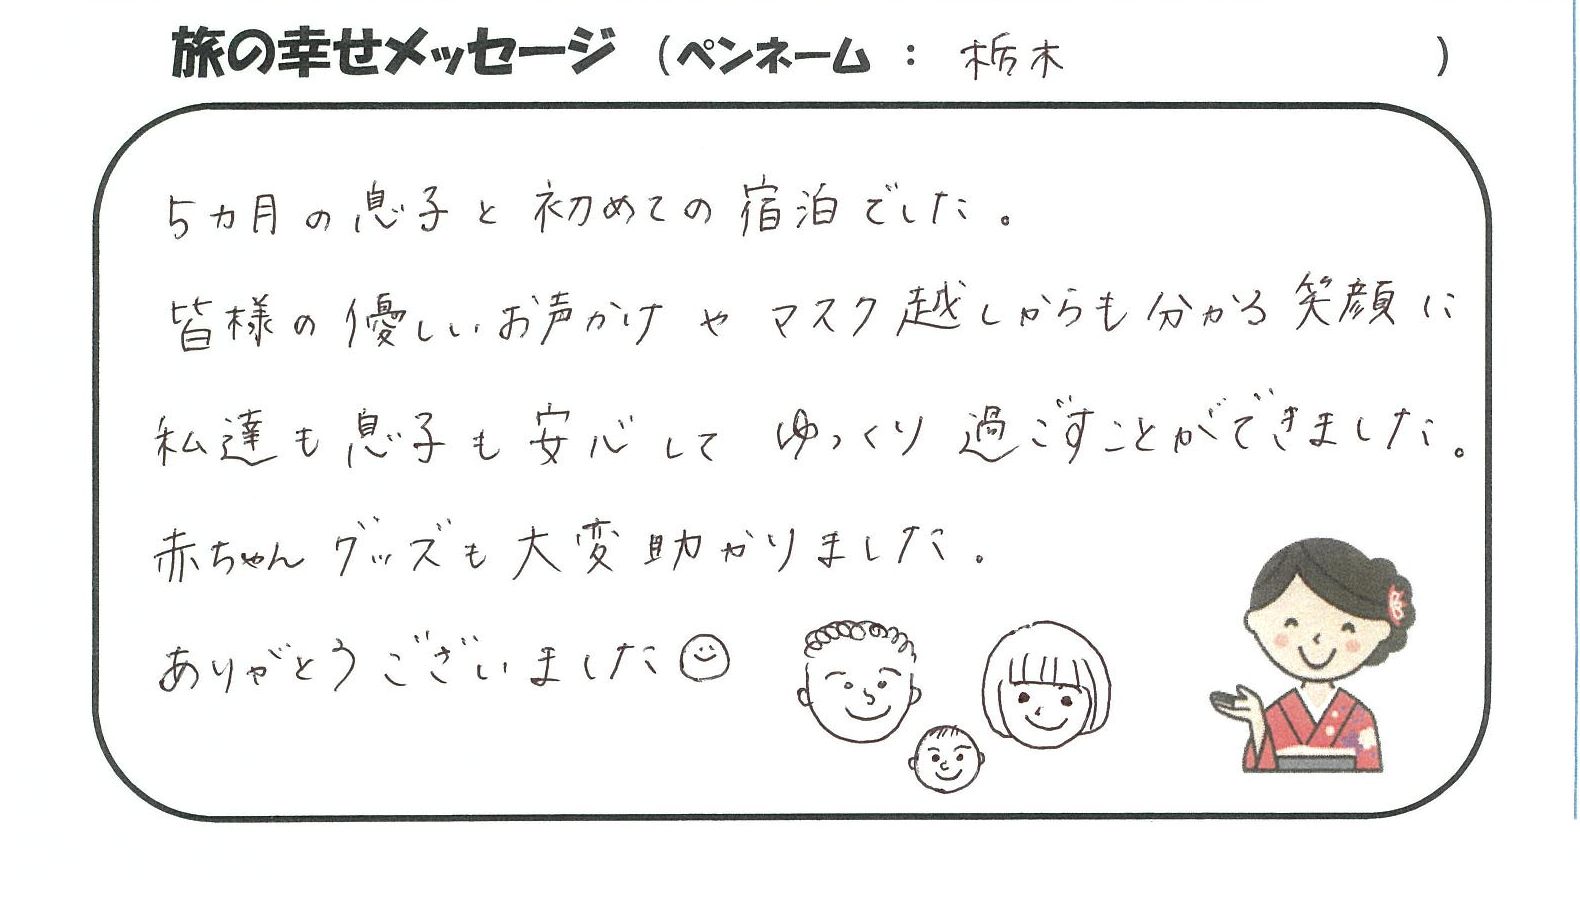 旅の幸せメッセージ （ペンネーム ： 栃木 ）
5カ月の息子と初めての宿泊でした。
皆様の優しいお声かけやマスク越しからも分かる笑顔に
私達も息子も安心してゆっくり過ごすことができました。
赤ちゃんグッズも大変助かりました。
ありがとうございました